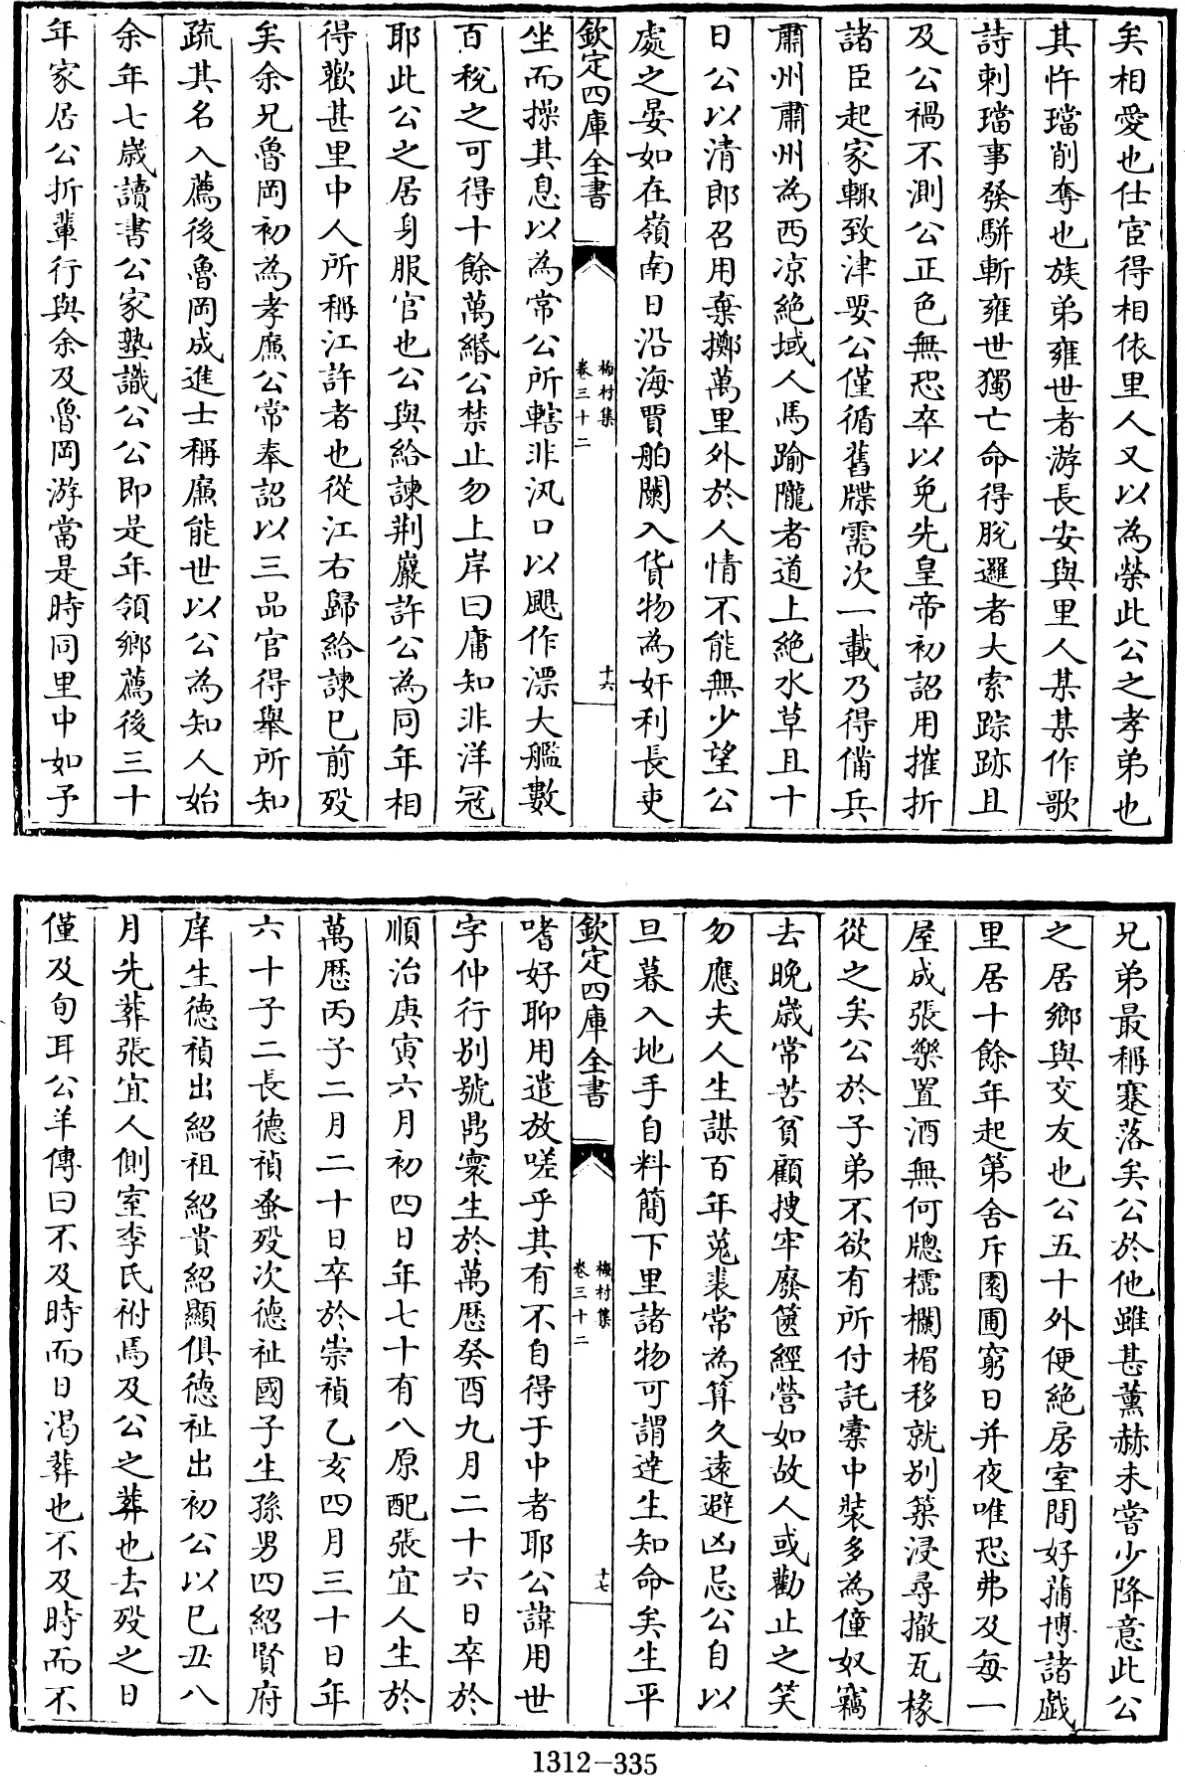 矣相愛也仕宦得相依里人又以為榮此公之孝弟也
其忤璫削奪也族弟雍世者游長安與里人某某作歌
詩刺璫事發駢斬雍世獨亡命得脫邏者大索踪跡且
及公禍不測公正色無恐卒以免先皇帝初詔用摧折
諸臣起家輒致津要公僅循舊牒需次一載乃得備兵
肅州肅州為西凉絶域人馬踰隴者道上絶水草且十
日公以清郎召用棄擲萬里外於人情不能無少望公
處之晏如在嶺南日沿海賈舶闌入貨物為奸利長吏
欽定四庫全書
梅村集
卷三十二
十六
坐而操其息以為常公所轄非汛口以颶作漂大艦數
百稅之可得十餘萬緡公禁止勿上岸曰庸知非洋冦
耶此公之居身服官也公與給諫荆巖許公為同年相
得歡甚里中人所稱江許者也從江右歸給諫已前殁
矣余兄魯岡初為孝廉公常奉詔以三品官得舉所知
疏其名入薦後魯岡成進士稱廉能世以公為知人始
余年七歲讀書公家塾識公公即是年領鄉薦後三十
年家居公折輩行與余及魯岡游當是時同里中如予
兄弟最稱蹇落矣公於他雖甚薰赫未嘗少降意此公
之居鄉與交友也公五十外便絶房室間好蒱博諸戱
里居十餘年起第舍斥園圃窮日并夜唯恐弗及每一
屋成張樂置酒無何牕檽欄楣移就别築浸尋撤瓦椽
從之矣公於子弟不欲有所付託橐中裝多為僮奴竊
去晚歲常苦貧顧搜牢廢篋經營如故人或勸止之笑
勿應夫人生謀百年菟裘常為算久遠避凶忌公自以
旦暮入地手自料簡下里諸物可謂達生知命矣生平
欽定四庫全書
梅村集
卷三十二
十七
嗜好聊用遣放嗟乎其有不自得于中者耶公諱用世
字仲行别號鼎寰生於萬歷癸酉九月二十六日卒於
順治庚寅六月初四日年七十有八原配張宜人生於
萬歷丙子二月二十日卒於崇禎乙亥四月三十日年
六十子二長德禎蚤殁次德祉國子生孫男四紹賢府
庠生德禎出紹祖紹貴紹顯俱德祉出初公以已丑八
月先葬張宜人側室李氏祔焉及公之葬也去殁之日
僅及旬耳公羊傳曰不及時而日渴葬也不及時而不
1312-335